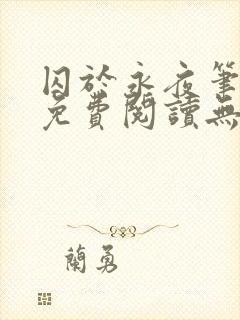 囚於永夜筆
免費閱讀無
蘭勇